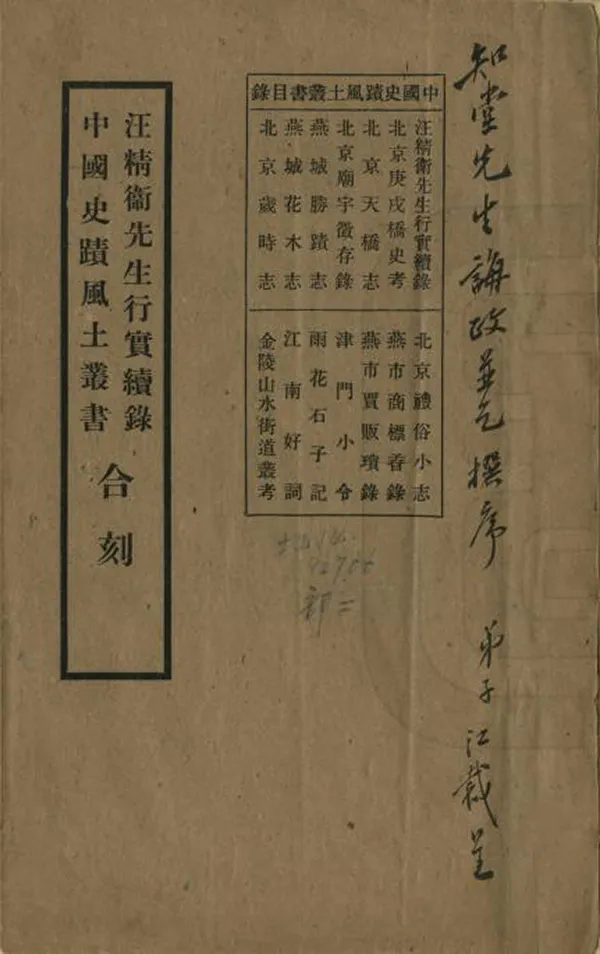 知堂先生誨政並乞撰序 弟子江裁呈
中國史蹟風土叢書目錄
汪精衞先生行實續錄
北京庚戌橋史考
北京天橋志
北京廟宇徵存錄
燕城勝蹟志
燕城花木志
北京歲時志
北京禮俗小志
燕市商標䓣錄
燕市賈販瑣錄
津門小令
雨花石子記
江南好詞
金陵山水街道叢考
汪精衞先生行實續錄
中國史蹟風土叢書
合刻
部二